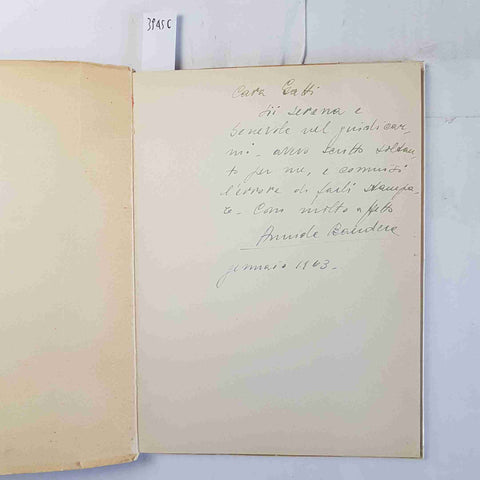 39456
Cara Gatti
sii serena e
benevola nel giudicar-
mi - avevo scritto soltan-
to per me, e commisi
l'errore di farli stampa-
re - Con molto affetto
Bandera
gennaio 1943 -